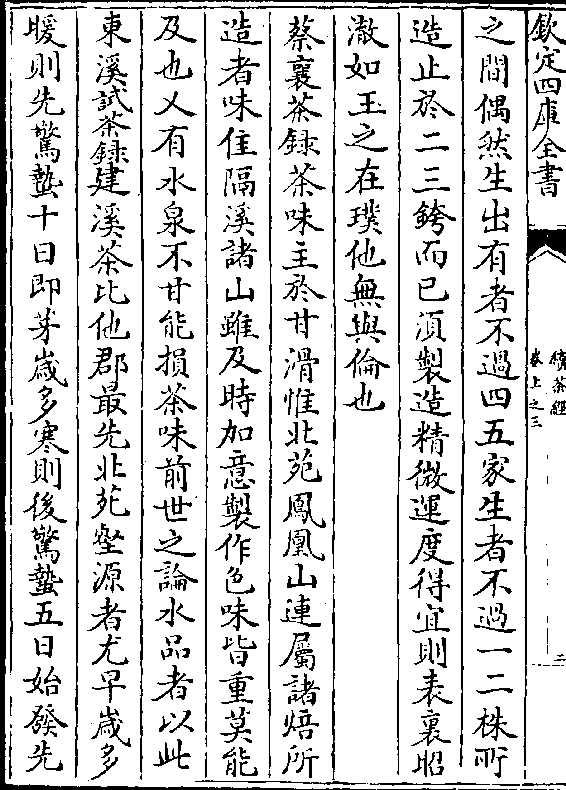 欽定四庫全書
續茶經
卷上之三
二
之間偶然生出有者不過四五家生者不過一二株所
造止於二三銙而已湏製造精微運度得宜則表裏昭
澈如玉之在璞他無與倫也
蔡襄茶録茶味主於甘滑惟北苑鳳凰山連屬諸焙所
造者味佳隔溪諸山雖及時加意製作色味皆重莫能
及也乂有水泉不甘能損茶味前世之論水品者以此
東溪試茶録建溪茶比他郡最先北苑壑源者尤早歳多
暖則先驚蟄十日即芽歳多寒則後驚蟄五日始發先